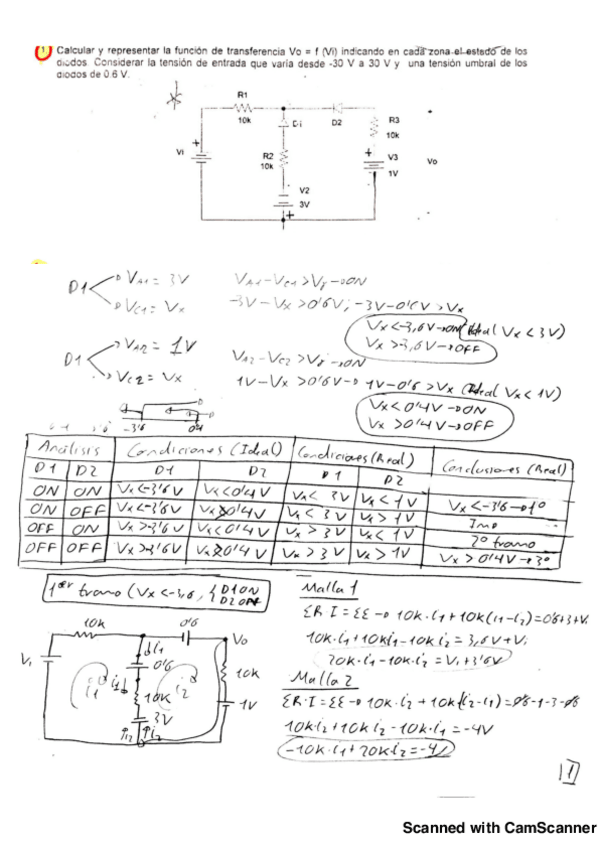 1 Calcular y representar la función de transferencia Vo = f (Vi) indicando en cada zona el estado de los
diodos. Considerar la tensión de entrada que varía desde -30 V a 30 V y una tensión umbral de los
diodos de 0.6 V.
R1
10k
D1
D2
R3
10k
Vi
+
R2
10k
+
V3
1V
Vo
V2
3V
+
D1
VA1 = 3V
VC1 = Vx
VA1-VC1 > Vγ → ON
-3V - Vx > 0'6V; -3V-0'6V > Vx
Vx < -3,6V → ON (Ideal Vx < 3V)
Vx > -3,6V → OFF
D1
VA2 = 1V
VC2 = Vx
VA2-VC2 > Vγ → ON
1V - Vx > 0'6V → 1V-0'6 > Vx (Ideal Vx < 1V)
Vx < 0'4V → ON
Vx > 0'4V → OFF
-3'6 0'4
Análisis Condiciones (Ideal) Condiciones (Real) Conclusiones (Real)
D1 D2 D1 D2 D1 D2
ON ON Vx<-3'6V Vx<0'4V Vx< 3V Vx< 1V Vx<-3'6→1º
ON OFF Vx<-3'6V Vx>0'4V Vx< 3V Vx> 1V Imp
OFF ON Vx>-3'6V Vx<0'4V Vx> 3V Vx< 1V 2º tramo
OFF OFF Vx>-3'6V Vx>0'4V Vx> 3V Vx> 1V Vx>0'4V→3º
1er tramo (Vx<-3,6, { D1 ON
D2 OFF
Malla 1
ΣR·I=ΣE → 10k·i1+10k(i1-i2)=0'6+3+Vi
10k·i1+10k i1-10k i2 = 3,6V+Vi
20k·i1-10k·i2 = Vi+3'6V
Malla 2
ΣR·I=ΣE → 10k·i2+10k(i2-i1)=0'6-1-3-0'6
10k i2+10k i2-10k·i1=-4V
-10k·i1+20k i2=-4V
10k
0'6
Vo
Vi
i1
0'6
10k
3V
i2
10k
1V
1
Scanned with CamScanner